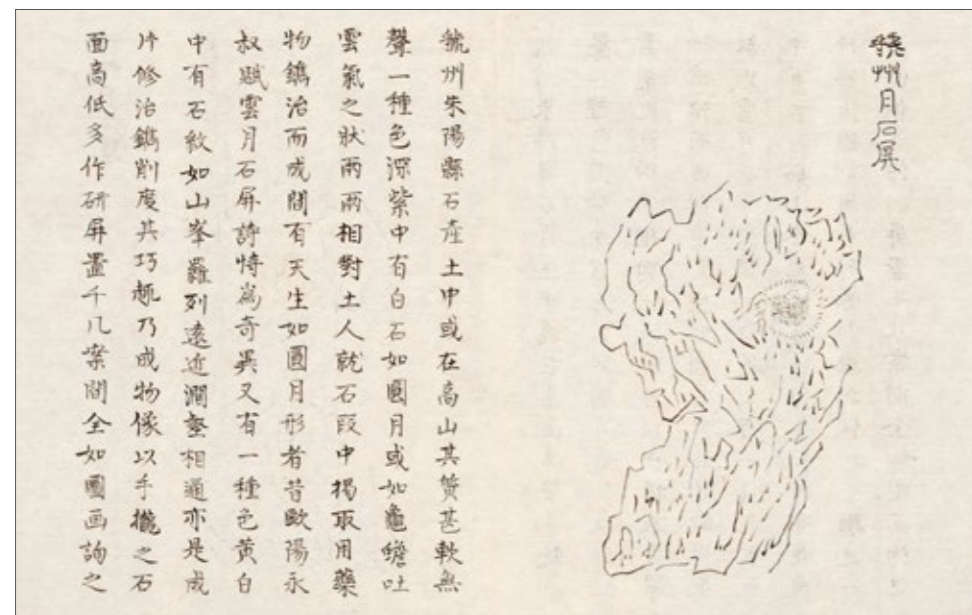 虢州月石屏
虢州朱陽縣石產土中或在高山其質甚軟無
聲一種色深紫中有白石如圓月或如龜蟾吐
雲氣之狀兩兩相對土人就石段中揭取用藥
物鐫治而成間有天生如圓月形者昔歐陽永
叔賦雲月石屏詩特為奇異又有一種色黃白
中有石紋如山峯羅列遠近澗壑相通亦是成
片修治鐫削度其巧趣乃成物像以手攏之石
面高低多作研屏置千几案間全如圖画詢之